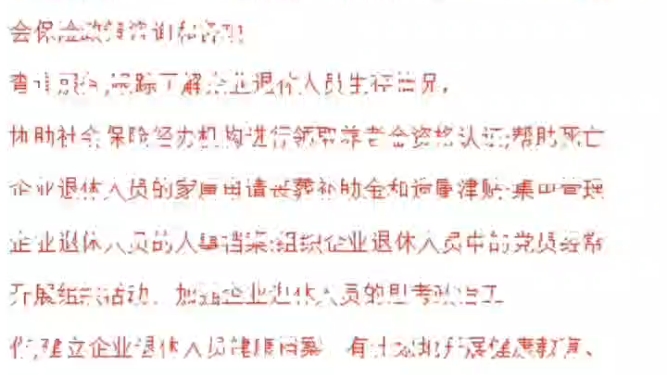 会保险政策咨询和各项
跟踪了解企业退休人员生存情况,
协助社会保险经办机构进行领取养老金资格认证;帮助死亡
企业退休人员的家属申请丧葬补助金和遗属津贴;集中管理
企业退休人员的人事档案;组织企业退休人员中的党员经常
开展组织活动,加强企业退休人员的思想政治工
作;建立企业退休人员健康档案,有计划地开展健康教育、